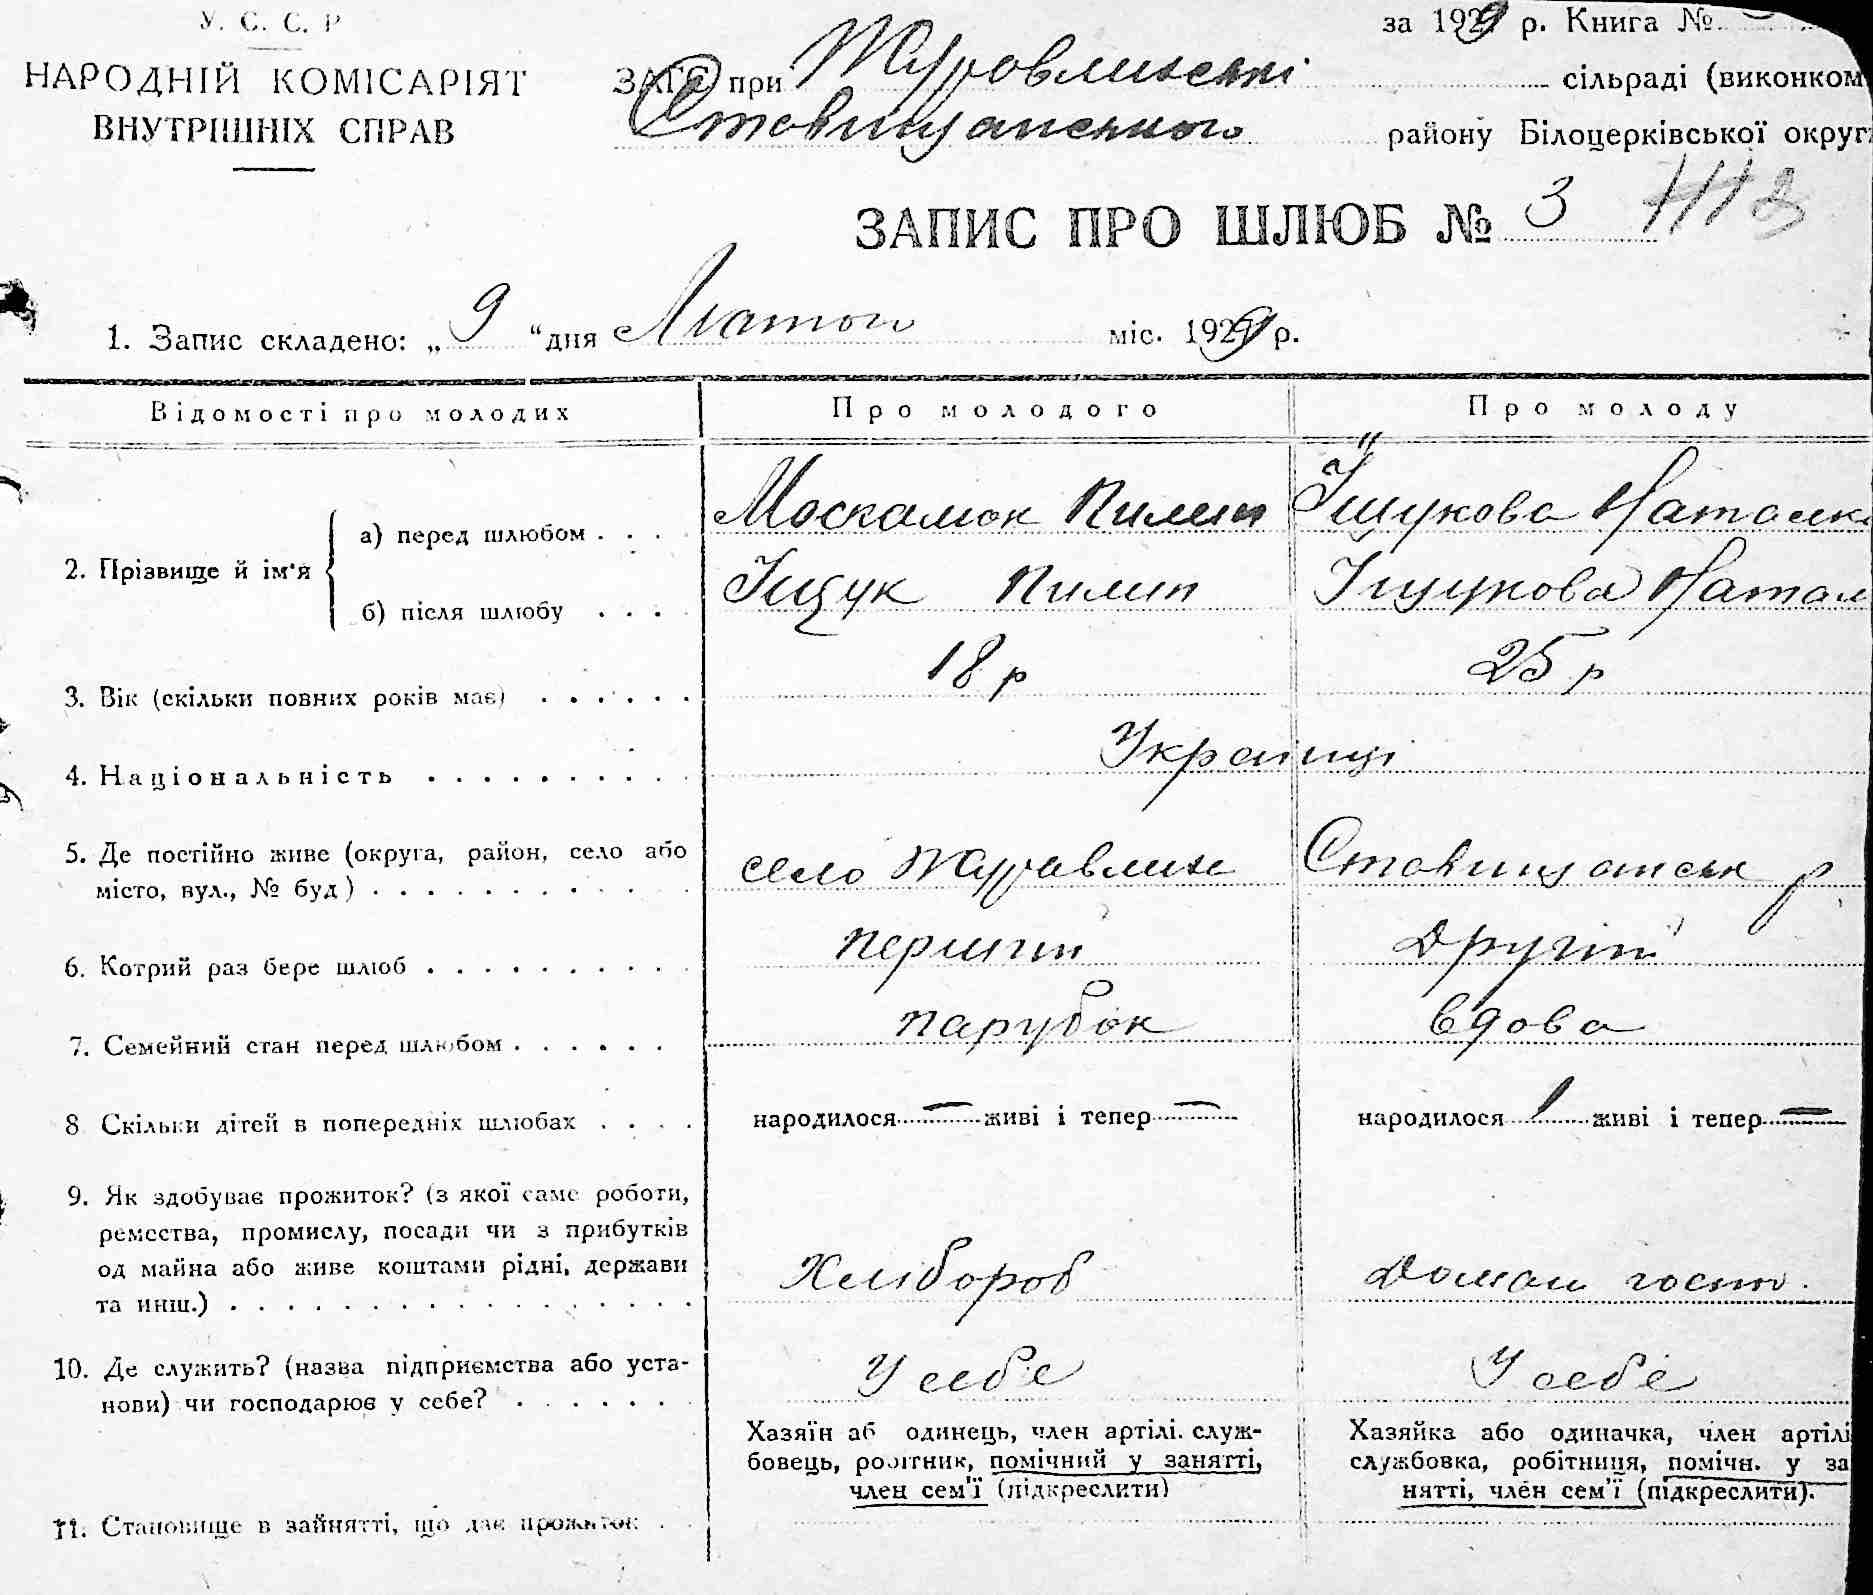 У. С. С. Р
НАРОДНІЙ КОМІСАРІЯТ
ВНУТРІШНІХ СПРАВ
за 1929 р. Книга №
ЗАГС при Журавлинські сільраді (виконком
Ставищанського району Білоцерківської округ
ЗАПИС ПРО ШЛЮБ № 3
1. Запис складено: „ 9 “ дня Лютого міс. 1929 р.
Відомості про молодих Про молодого Про молоду
2. Прізвище й ім'я
а) перед шлюбом . . . . Москалюк Пилип Їщукова Наталк
б) після шлюбу . . . Іщук Пилип Іщукова Натал
3. Вік (скільки повних років має) . . . . . . 18 р 25 р
4. Національність . . . . . . . . . . Українці
5. Де постійно живе (округа, район, село або
місто, вул., № буд) . . . . . . . . . . село Журавлихе Ставищанськ р.
6. Котрий раз бере шлюб . . . . . . . . . перший другій
7. Семейний стан перед шлюбом . . . . . . парубок вдова
8 Скільки дітей в попередніх шлюбах . . . . народилося — живі і тепер — народилося 1 живі і тепер —
9. Як здобуває прожиток? (з якої саме роботи,
ремества, промислу, посади чи з прибутків
од майна або живе коштами рідні, держави
та инш.) . . . . . . . . . . . . . . . . . Хлібороб Домаш госпо.
10. Де служить? (назва підприємства або уста-
нови) чи господарює у себе? . . . . . . . У себе У себе
Хазяїн аб одинець, член артілі. служ-
бовець, робітник, помічний у занятті,
член сем'ї (підкреслити)
Хазяйка або одиначка, член артілі
службовка, робітниця, помічн. у за
нятті, член сем'ї (підкреслити).
11. Становище в зайнятті, що дає прожиток .